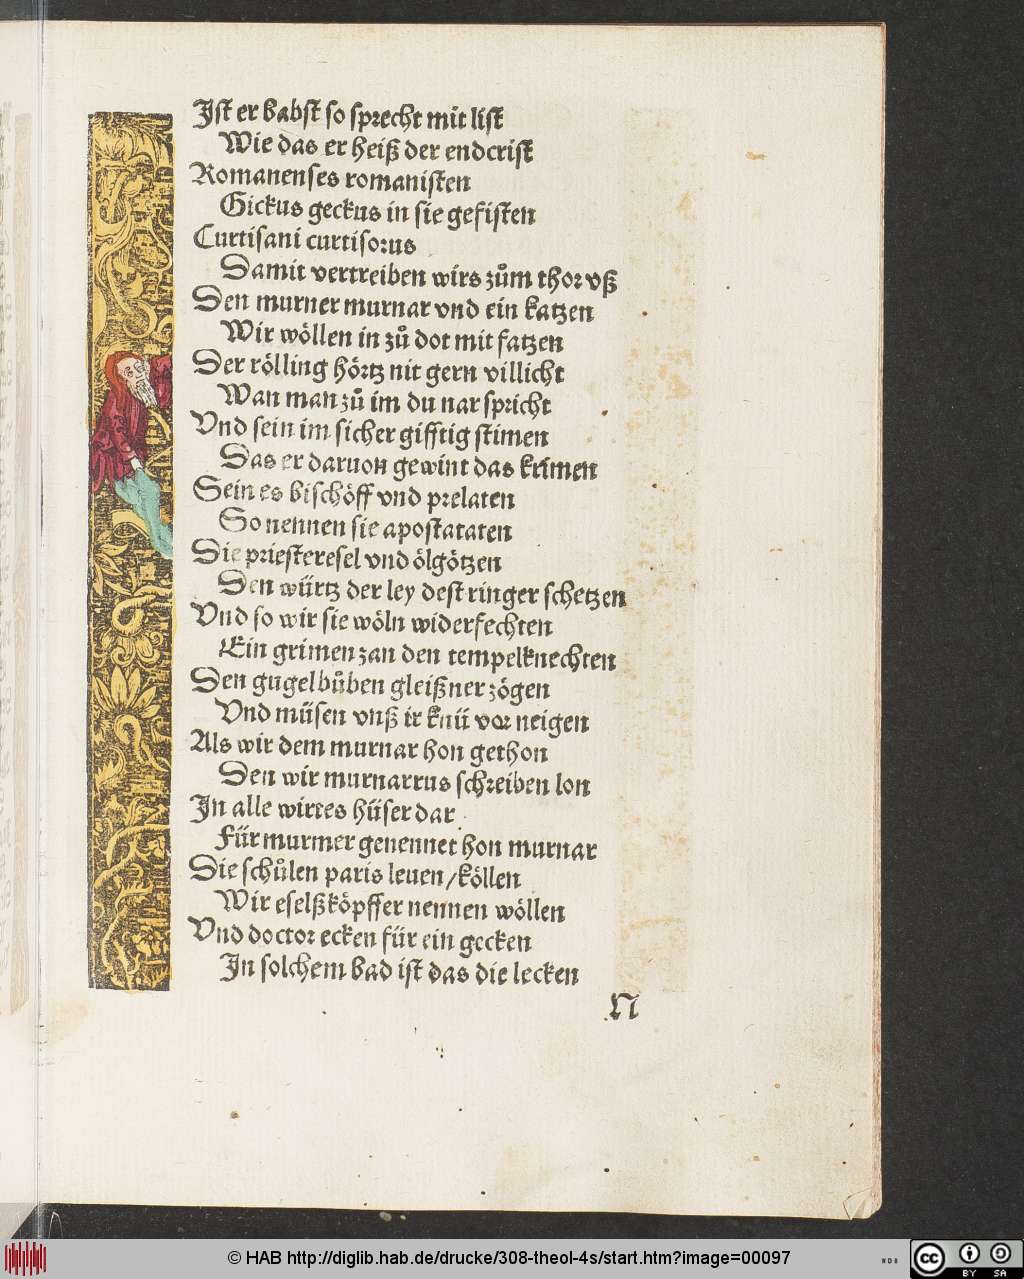 Iſt er babſt so ſprecht mit liſt
Wie das er heiß der endcriſt
Romanenſes romaniſten
Gickus geckus in ſie gefiſten
Curtiſani curtiſorus
Damit vertreiben wirs zům thor vß
Den murner murnar vnd ein katzen
Wir wöllen in zů dot mit fatzen
Der rölling hörtz nit gern villicht
Wan man zů im du nar ſpricht
Vnd ſein im ſicher gifftig ſtimen
Das er daruon gewint das krimen
Sein es biſchöff vnd prelaten
So nennen ſie apoſtataten
Die prieſtereſel vnd ölgötzen
Den würtz der ley deſt ringer ſchetzen
Vnd ſo wir ſie wöln widerfechten
Ein grimen zan den tempelknechten
Den gugelbůben gleißner zögen
Vnd müſen vnß ir knü vor neigen
Als wir dem murnar hon gethon
Den wir murnarrus ſchreiben lon
In alle wirtes hüſer dar
Für murmer genennet hon murnar
Die ſchůlen paris leuen/köllen
Wir eſelßköpffer nennen wöllen
Vnd doctor ecken für ein gecken
In ſolchem bad iſt das die lecken
N
© HAB http://diglib.hab.de/drucke/308-theol-4s/start.htm?image=00097
cc BY SA